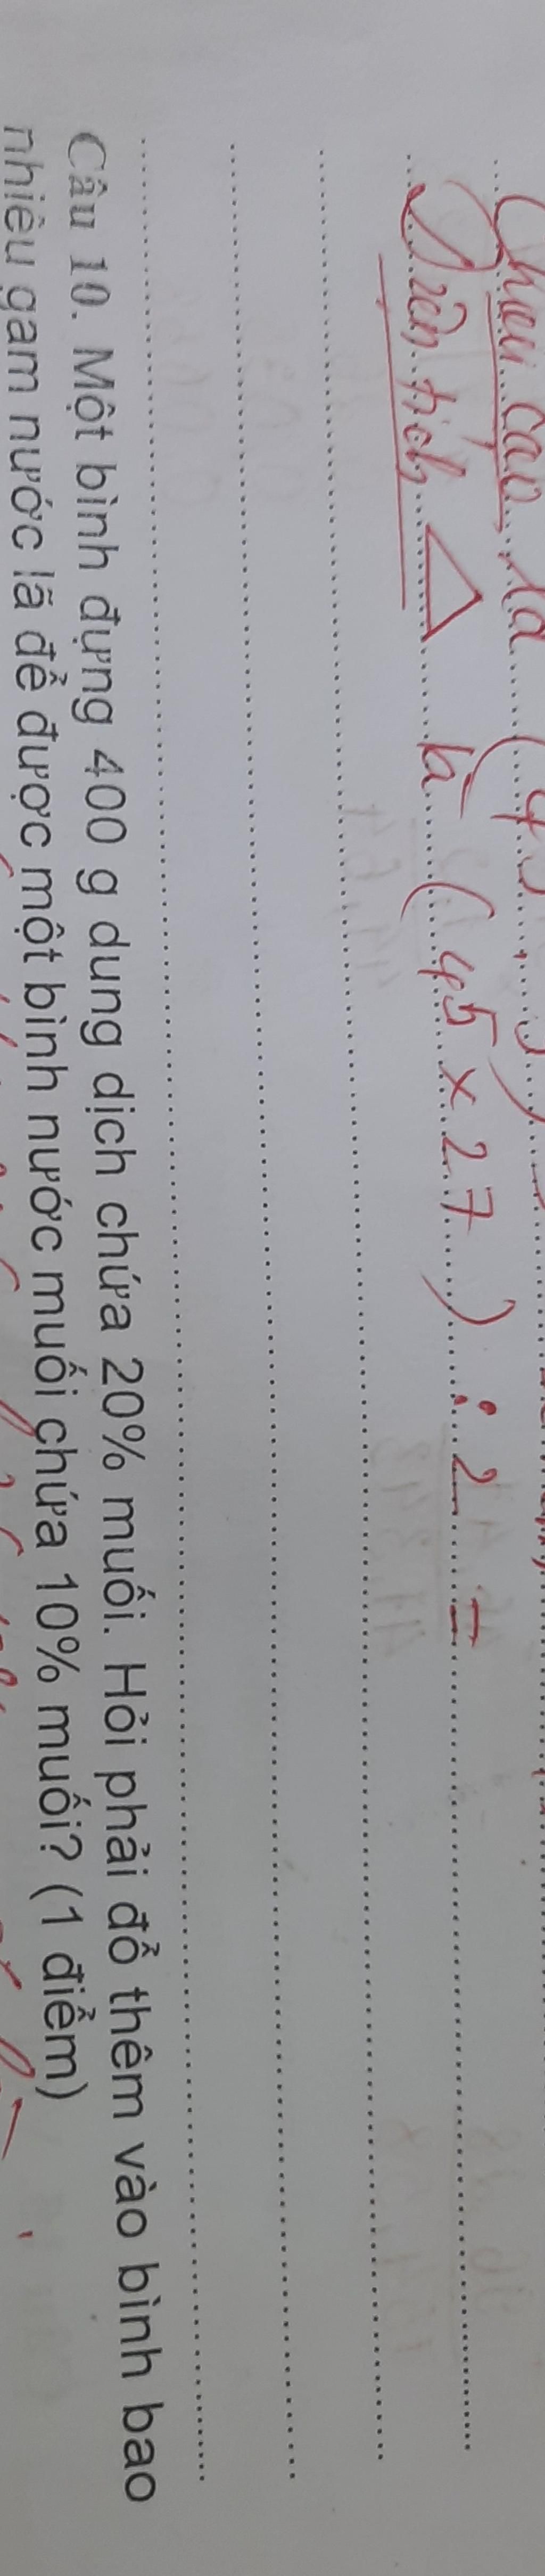 Chiều cao là (45
Diện tích △ là (45 x 27) : 2 =
Câu 10. Một bình đựng 400 g dung dịch chứa 20% muối. Hỏi phải đổ thêm vào bình bao
nhiêu gam nước lã để được một bình nước muối chứa 10% muối? (1 điểm)